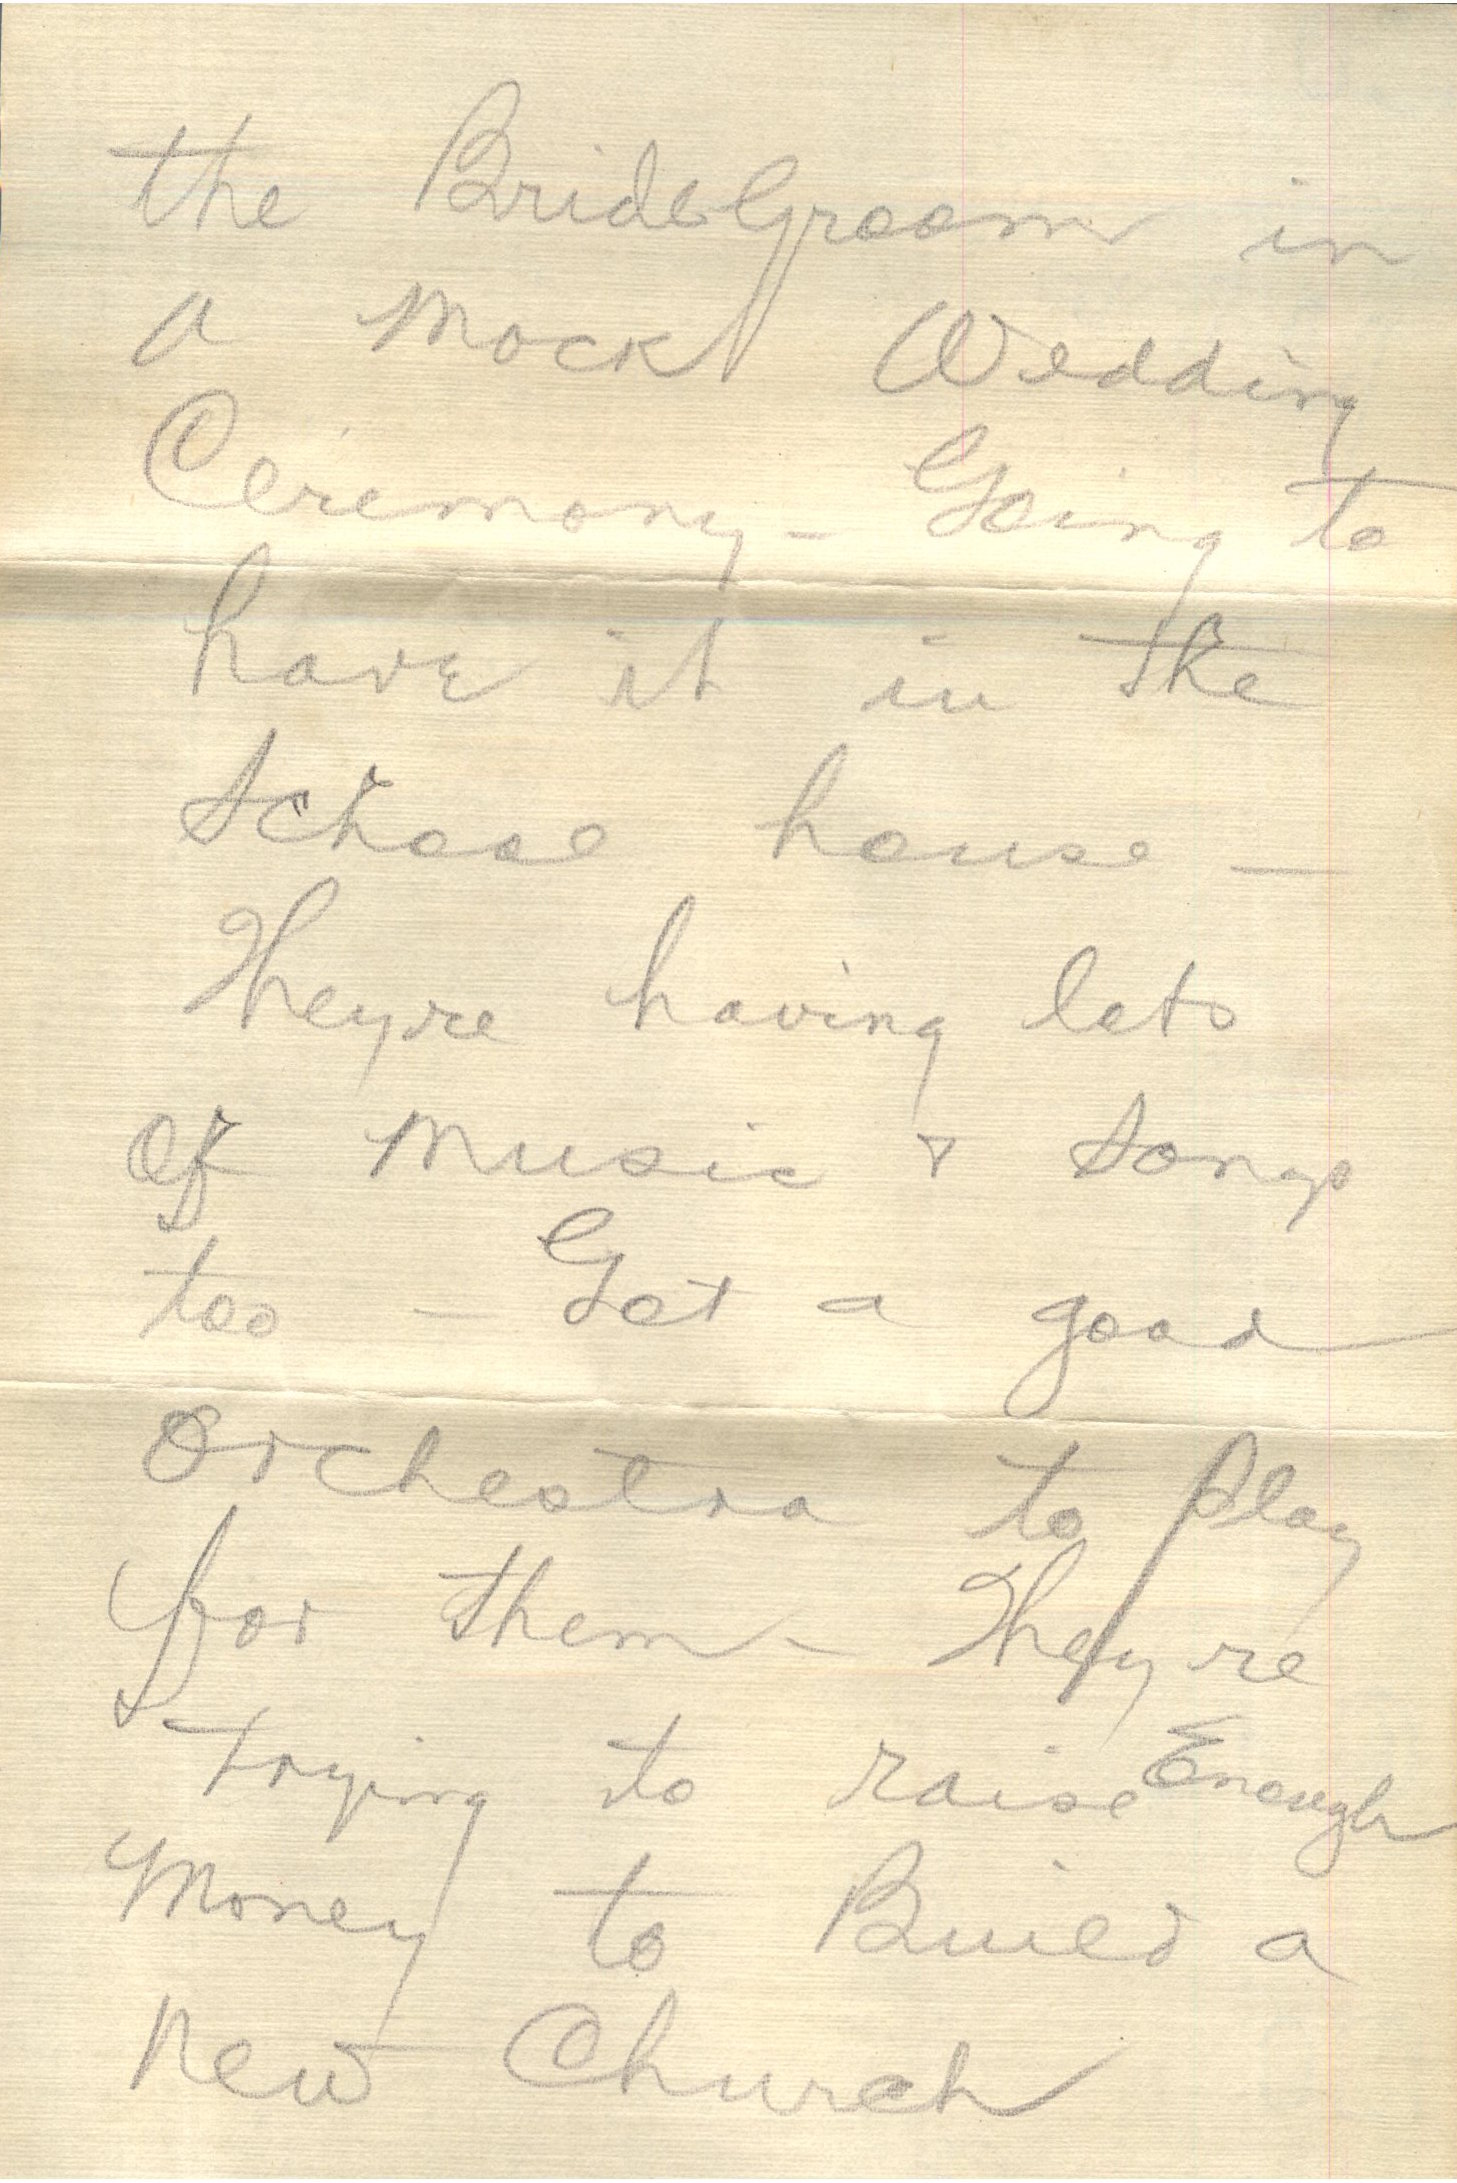 the BrideGroom in
a Mock Wedding
Ceremony - Going to
have it in the
School house -
Theyre having lots
of Music & Songs
too - Got a good
Orchestra to Play
for them - Theyre
trying to raise Enough
Money to Build a
New Church